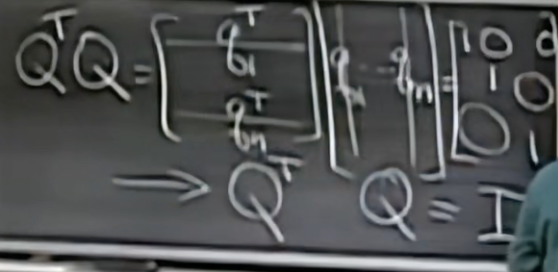 QᵀQ = [q₁ᵀ ⋯ qₙᵀ] [q₁ ⋯ qₙ] = [1 0 0 1 0 0 1]
→ Qᵀ Q = I